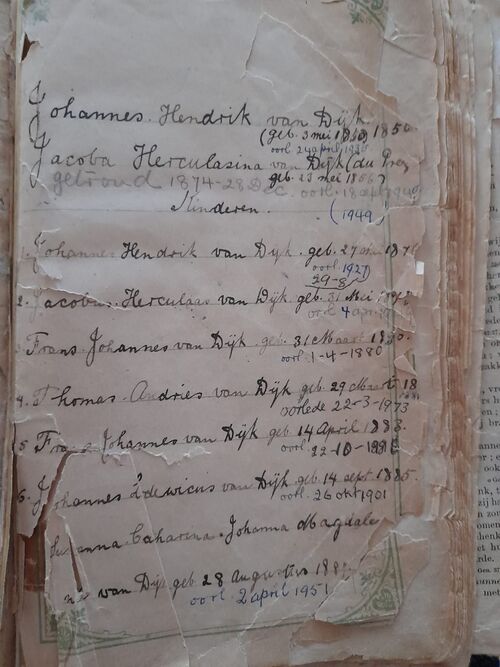 Johannes Hendrik van Dijk
(geb. 3 mei 1850
oorl 24 april
Jacoba Herculasina van Dijk (du Preez
geb. 23 mei 1856)
getroud 1874-28 Dec. oorl. 18
Kinderen. (1949)
1. Johannes Hendrik van Dijk. geb. 27
oorl 1927
29-8
2. Jacobus Herculaas van Dijk. geb. 31 Mei
oorl 4
Frans Johannes van Dijk geb. 31 Maart 1880.
oorl. 1-4-1880
4. Thomas Andries van Dijk geb. 29 Maart 18
oorlede 22-3-1973
5 Frans Johannes van Dijk geb 14 April 1883.
oorl. 22-10-
6. Johannes Lodewicus van Dijk. geb. 14 sept. 1885.
oorl. 26 okt 1901
Susanna Catharina Johanna Magdale
van Dijk geb. 28 Augustus 188
oorl. 2 april 1951